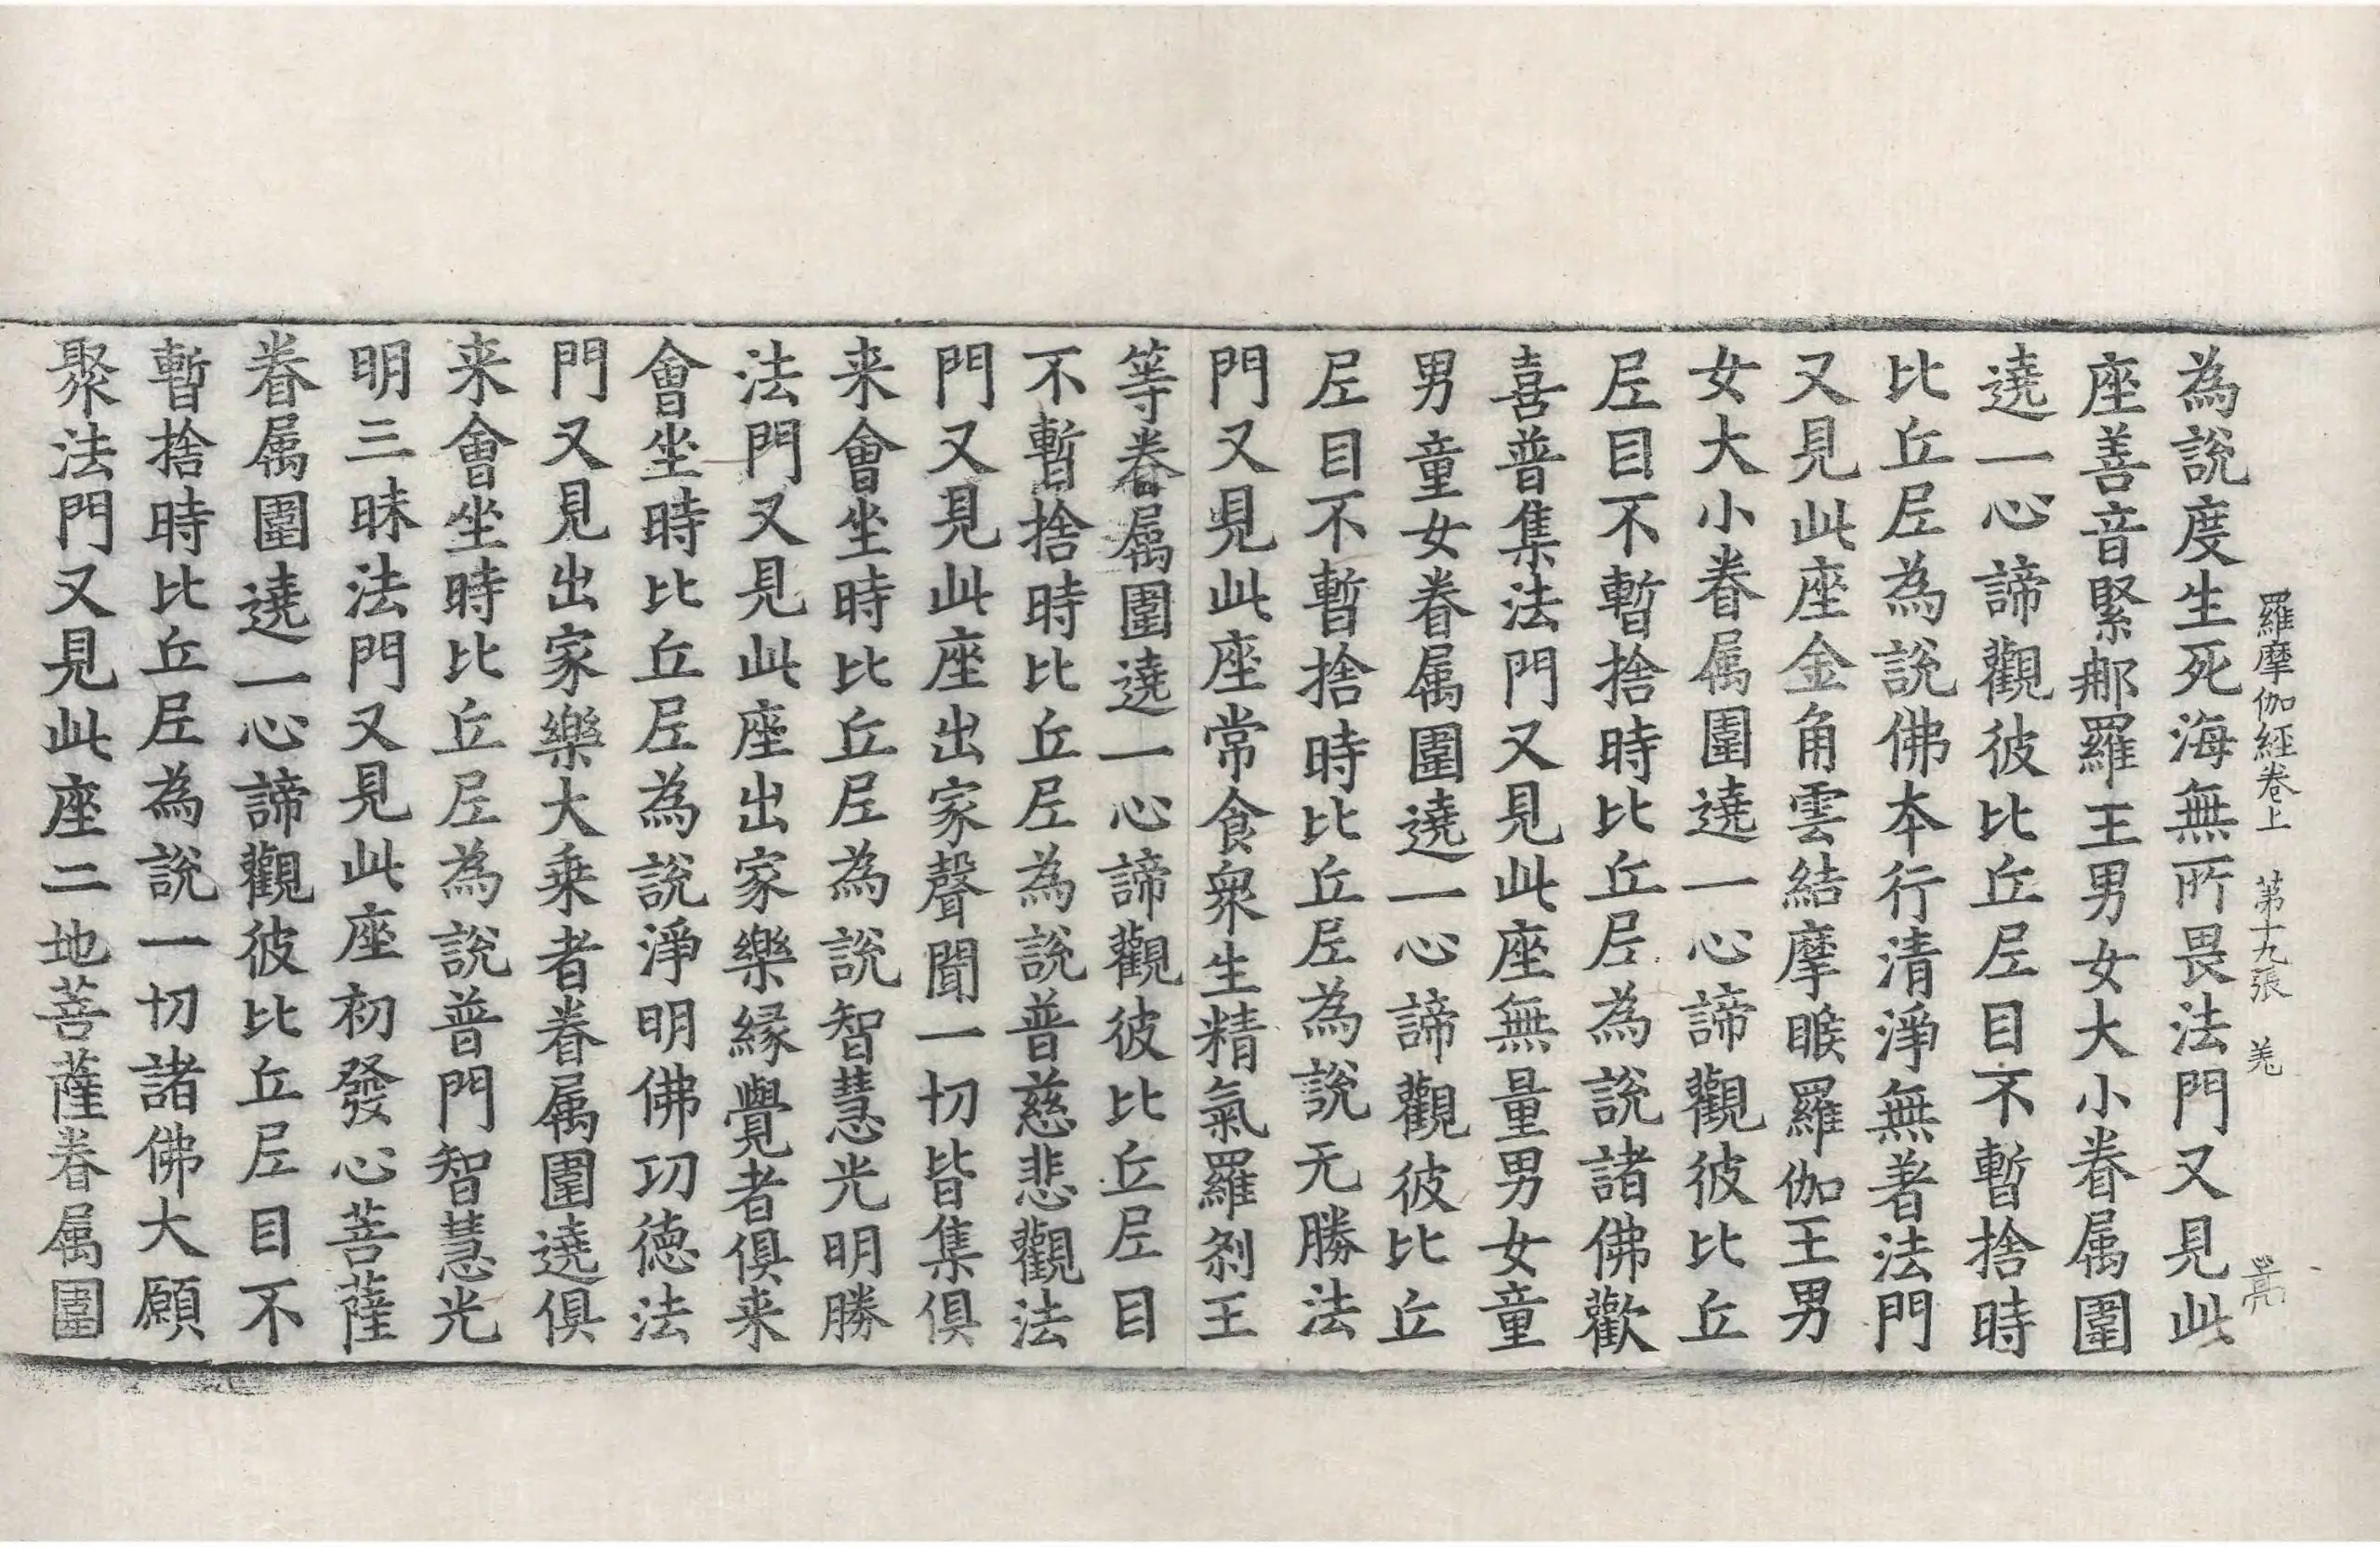 羅摩伽經卷上 第十九張 羌
為說度生死海無所畏法門又見此
座善音緊那羅王男女大小眷属圍
遶一心諦觀彼比丘尼目不暫捨時
比丘尼為說佛本行清淨無著法門
又見此座金角雲結摩睺羅伽王男
女大小眷属圍遶一心諦觀彼比丘
尼目不暫捨時比丘尼為說諸佛歡
喜普集法門又見此座無量男女童
男童女眷属圍遶一心諦觀彼比丘
尼目不暫捨時比丘尼為說无勝法
門又見此座常食衆生精氣羅剎王
等眷屬圍遶一心諦觀彼比丘尼目
不暫捨時比丘尼為說普慈悲觀法
門又見此座出家聲聞一切皆集俱
来會坐時比丘尼為說智慧光明勝
法門又見此座出家樂緣覺者俱来
會坐時比丘尼為說淨明佛功德法
門又見出家樂大乗者眷属圍遶俱
来會坐時比丘尼為說普門智慧光
明三昧法門又見此座初發心菩薩
眷属圍遶一心諦觀彼比丘尼目不
暫捨時比丘尼為說一切諸佛大願
聚法門又見此座二地菩薩眷属圍